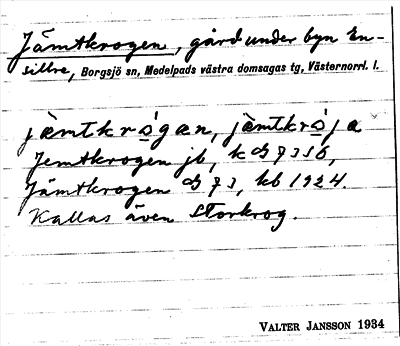 Jämtkrogen, gård under byn En-
sillre, Borgsjö sn, Medelpads västra domsagas tg, Västernorrl. l.
jæmtkrógæn, jæmtkró
Jemtkrogen jb, k
Jämtkrogen kb 1924.
Kallas även Storkrog.
VALTER JANSSON 1934